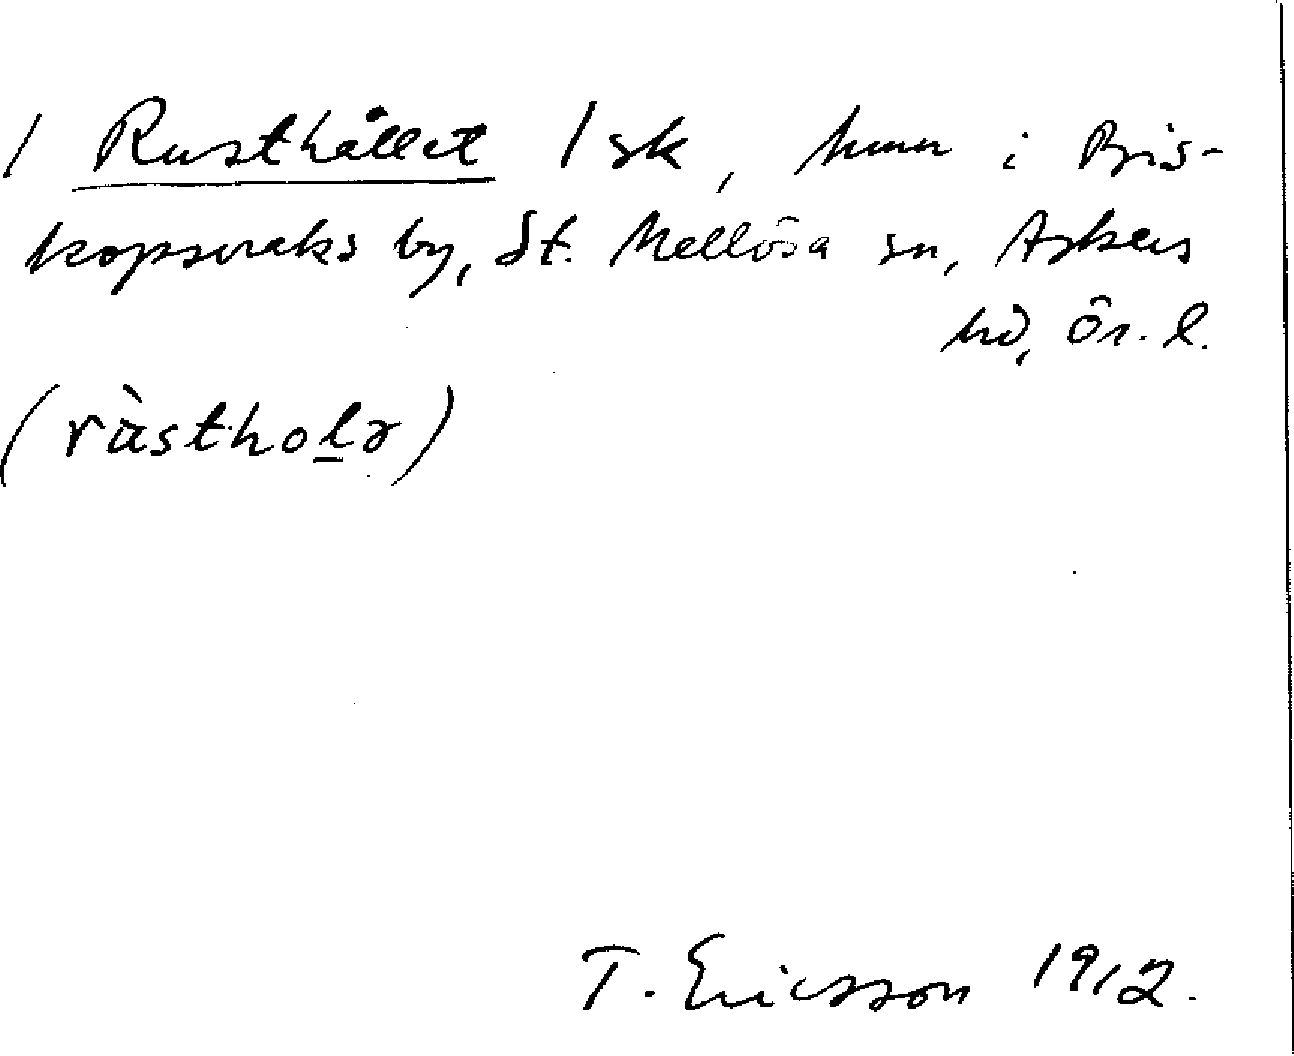 / Rusthållet / sk, hmn i Bis-
kopsvraks by, St. Mellösa sn, Askers
hd, Ör. l.
(ràstholə)
T. Ericsson 1912.